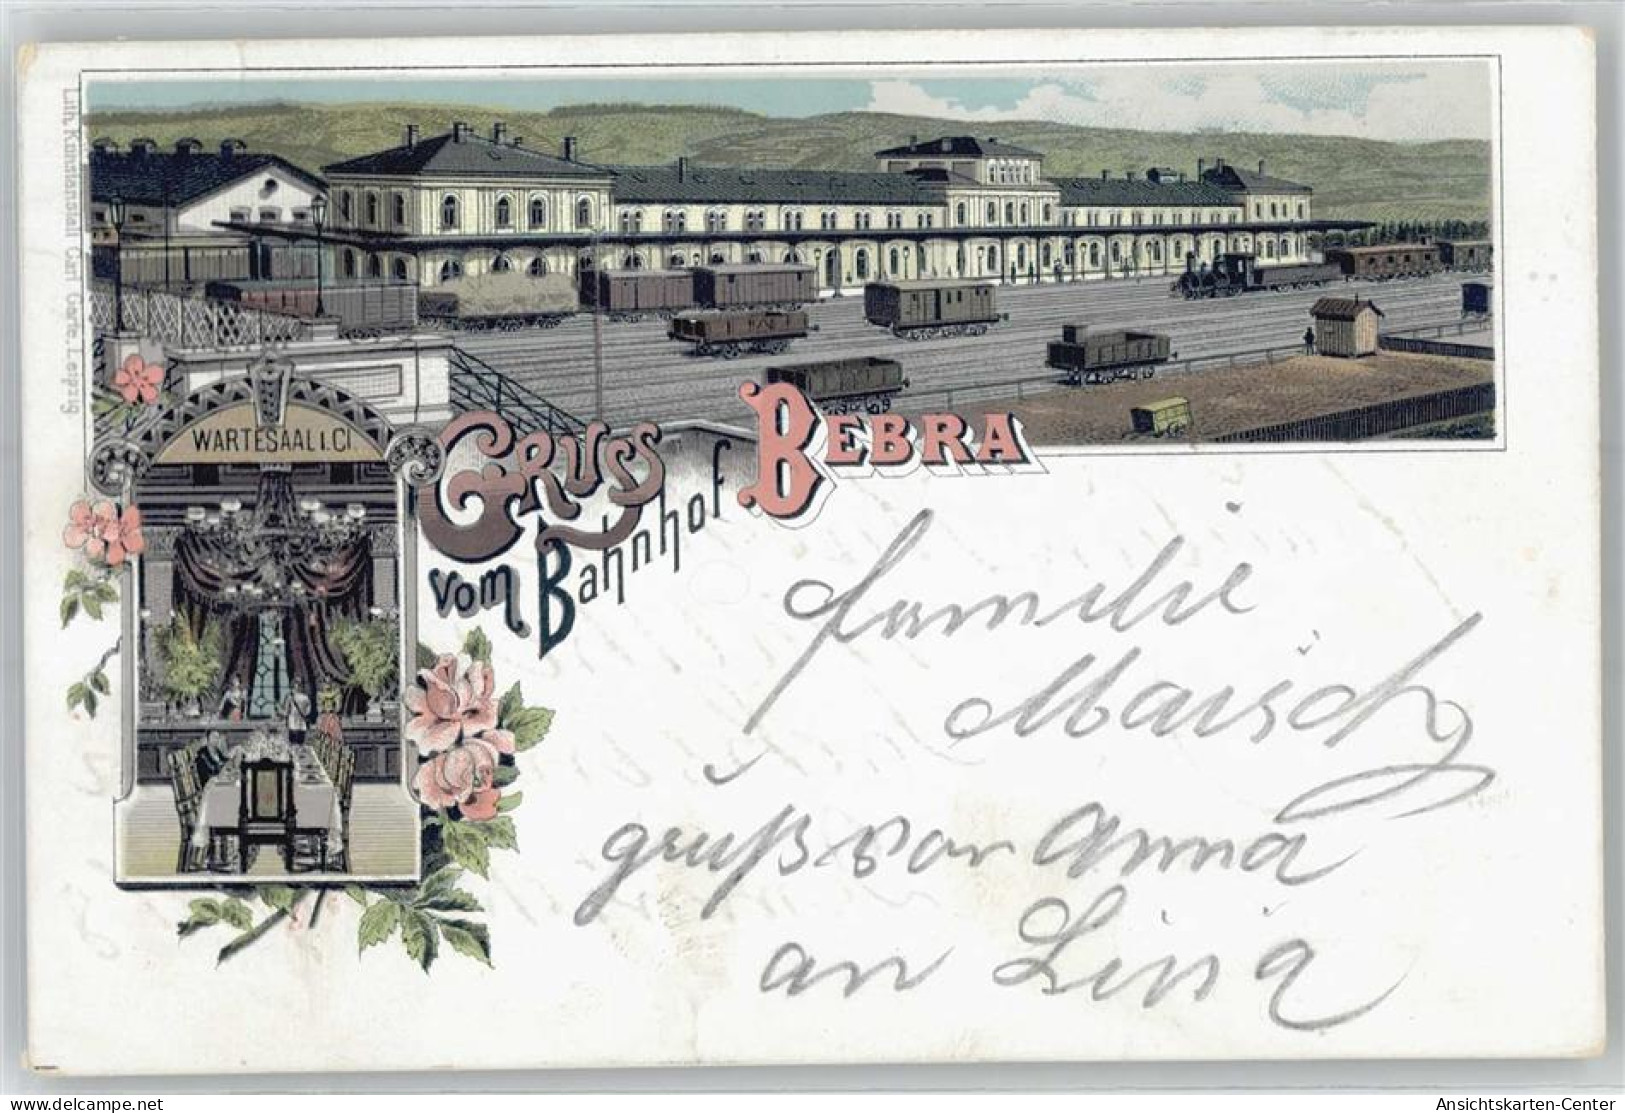 Lith. Kunstanstalt Carl Garte, Leipzig
WARTESAAL I. Cl.
GRUSS
vom Bahnhof BEBRA
Familie
Maisch
gruß von Anna
an Lina
delcampe.net
Ansichtskarten-Center